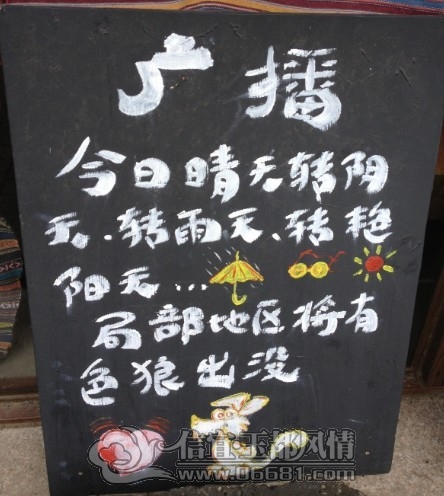 广播
今日晴天转阴
天、转雨天、转艳
阳天...
局部地区将有
色狼出没
信宜玉都风情
www.06681.com